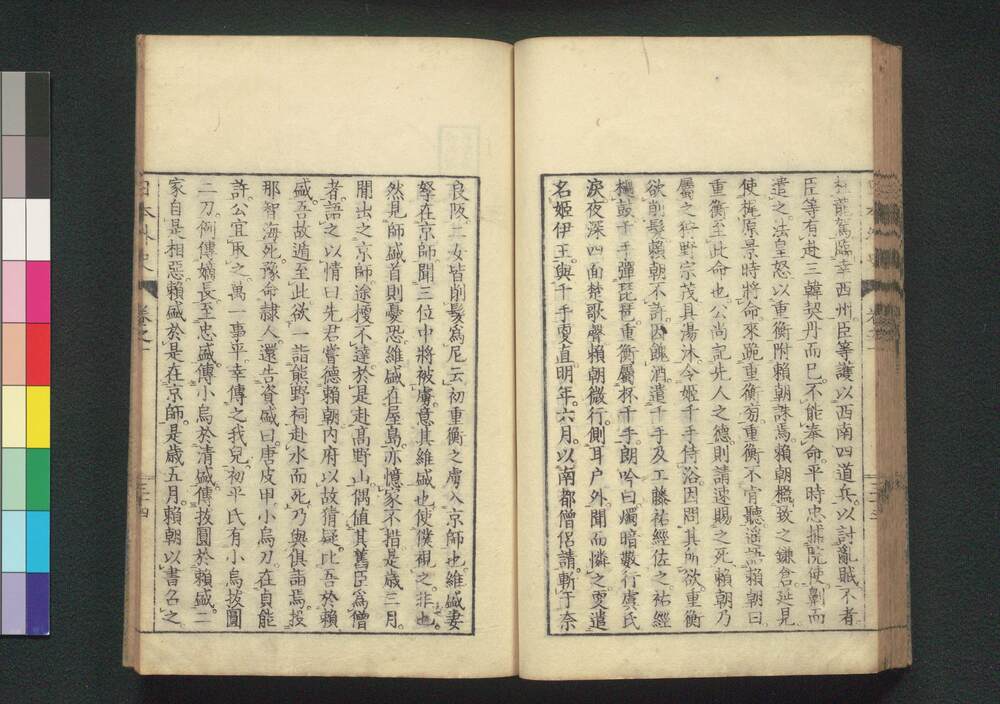 枉龍駕臨幸西州。臣等護以西南四道兵。以討亂賊。不者
臣等有赴三韓契丹而已。不能奉命。平時忠捕院使劓而
遣之。法皇怒。以重衡附賴朝誅焉。賴朝檻致之鎌倉。延見
使梶原景時將命來跪重衡旁。重衡不肯聽。遙語賴朝曰
重衡至此命也。公尚記先人之德。則請速賜之死。賴朝乃
屬之狩野宗茂。具湯沐。令姬千手侍浴。因問其所欲。重衡
欲削髮。賴朝不許。因餽酒。遣千手及工藤祐經佐之。祐經
撾鼓。千手彈琵琶。重衡屬杯千手。朗吟曰。燭暗數行虞氏
淚。夜深四面楚歌聲。賴朝微行。側耳戶外。聞而憐之。更遣
名姬伊王。與千手更直。明年六月。以南都僧侶請。斬于奈
良阪。二女皆削髮為尼云。初重衡之虜入京師也。維盛妻
孥在京師。聞三位中將被虜。意其維盛也。使僕視之。非也。
然見師盛首。則憂恐。維盛在屋島。亦憶家不措。是歲三月。
閒出之京師。途擾不達。於是赴高野山。偶值其舊臣為僧
者。語之以情曰。先君嘗德賴朝。內府以故猜疑。比吾於賴
盛。吾故遁至此。欲一詣熊野祠。赴水而死。乃與俱詣焉。投
那智海死。豫命隸人。還告資盛曰。唐皮甲小烏刀。在貞能
許。公宜取之。萬一事平。幸傳之我兒。初平氏有小烏拔圓
二刀。例傳嫡長。至忠盛。傳小烏於清盛。傳拔圓於賴盛。二
家自是相惡。賴盛於是在京師。是歲五月。賴朝以書召之。
日本外史
卷之二
二十四